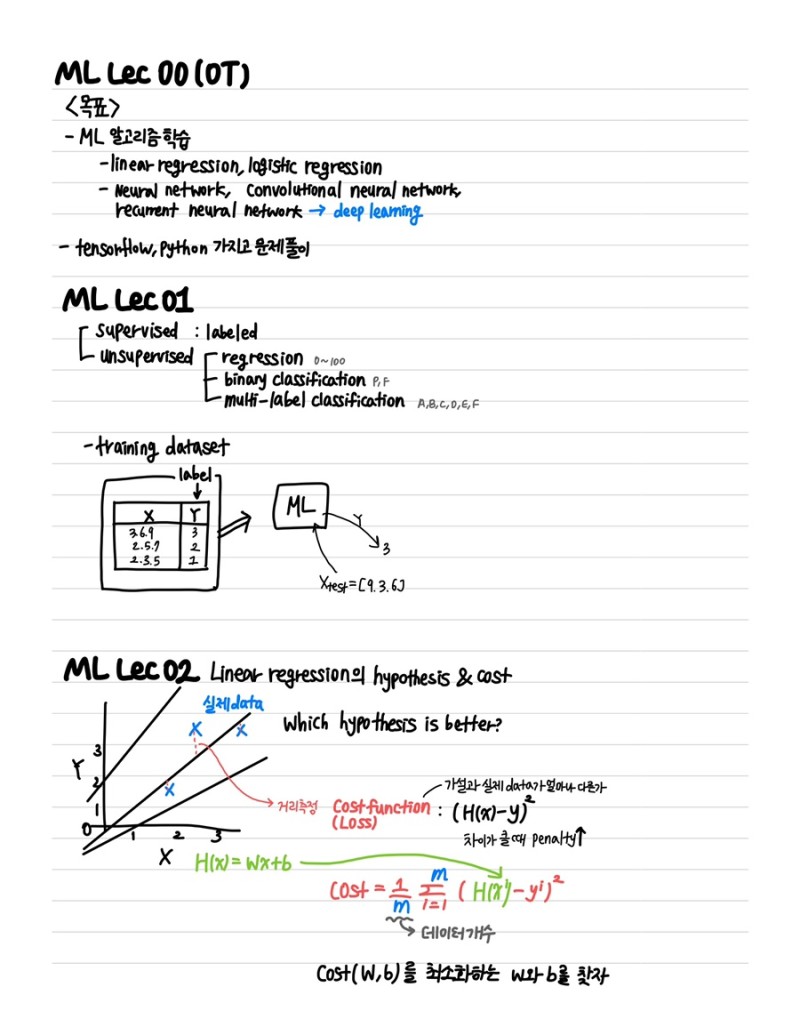 ML Lec 00 (OT)
<목표>
- ML 알고리즘 학습
- linear regression, logistic regression
- Neural network, Convolutional neural network,
recurrent neural network → deep learning
- tensorflow, Python 가지고 문제풀이
ML Lec 01
supervised : labeled
unsupervised
regression 0~100
binary classification P, F
multi-label classification A,B,C,D,E,F
- training dataset
label
X Y
3.6.9 3
2.5.7 2
2.3.5 1
ML
Y
3
Xtest=[9.3.6]
ML Lec 02 Linear regression의 hypothesis & cost
실제data
Which hypothesis is better?
X X
X
Y
3
2
1
0
1 2 3
X
가설과 실제 data가 얼마나 다른가
거리측정 Cost function : (H(x)-y)²
(Loss)
차이가 클 때 penalty↑
H(x) = Wx+b
Cost = 1/m Σ i=1 m (H(xⁱ)-yⁱ)²
→ 데이터 개수
Cost(W,b)를 최소화하는 W와 b를 찾자